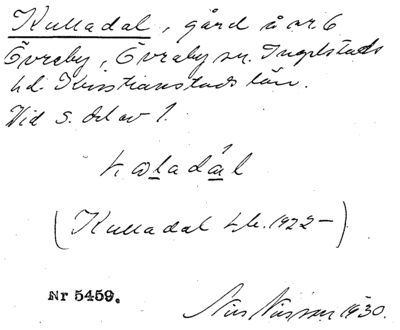 Kulladal, gård å nr 6
Övraby, Övraby sn. Ingelstads
hd. Kristianstads län.
Vid s. del av 1.
(Kulladal 1922–)
Nr 5459.
Nils Nilsson 1930.